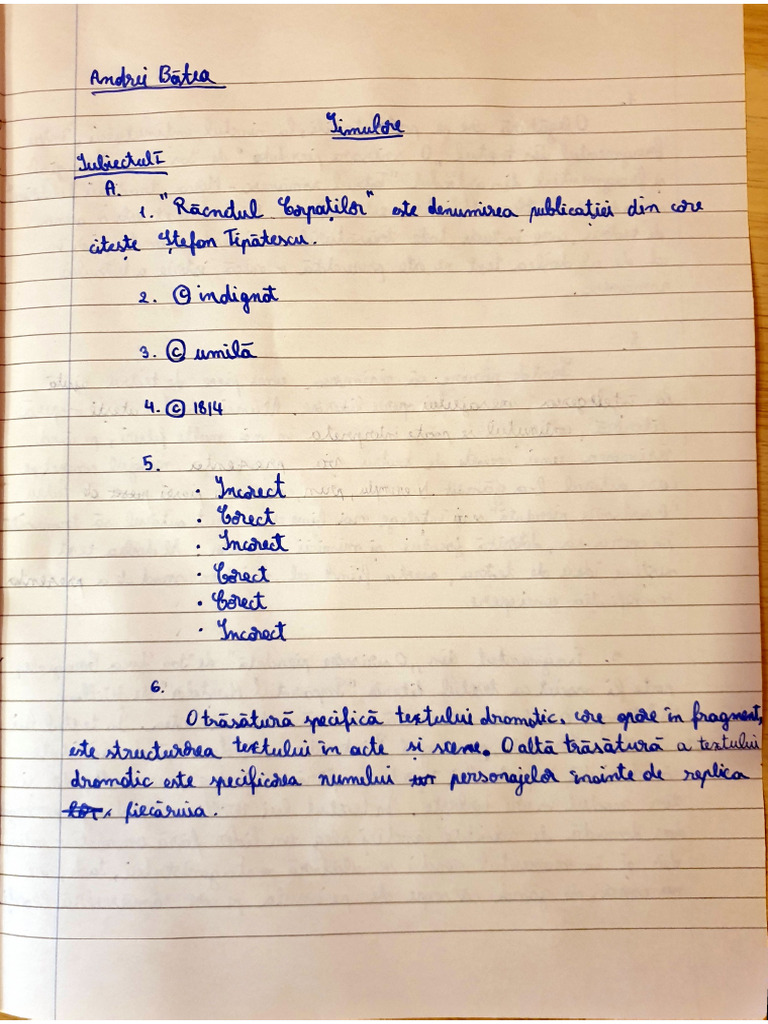 Andrei Bâtea
Simulare
Subiectul I
A.
1. "Răcndul Carpaților" este denumirea publicației din care
citește Ștefan Tipătescu.
2. ⓒ indignat
3. ⓒ umilă
4. ⓒ 1814
5.
• Incorect
• Corect
• Incorect
• Corect
• Corect
• Incorect
6.
O trăsătură specifică textului dramatic, care apare în fragment,
este structurarea textului în acte și scene. O altă trăsătură a textului
dramatic este specificarea numelui personajelor înainte de replica
fiecăruia.